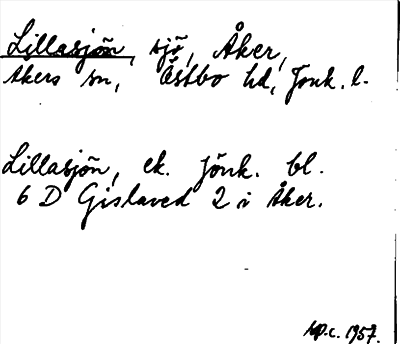 Lillasjön, sjö, Åker,
Åkers sn, Östbo hd, Jönk. l.
Lillasjön, ek. Jönk. bl.
6 D Gislaved 2 i Åker.
1957.